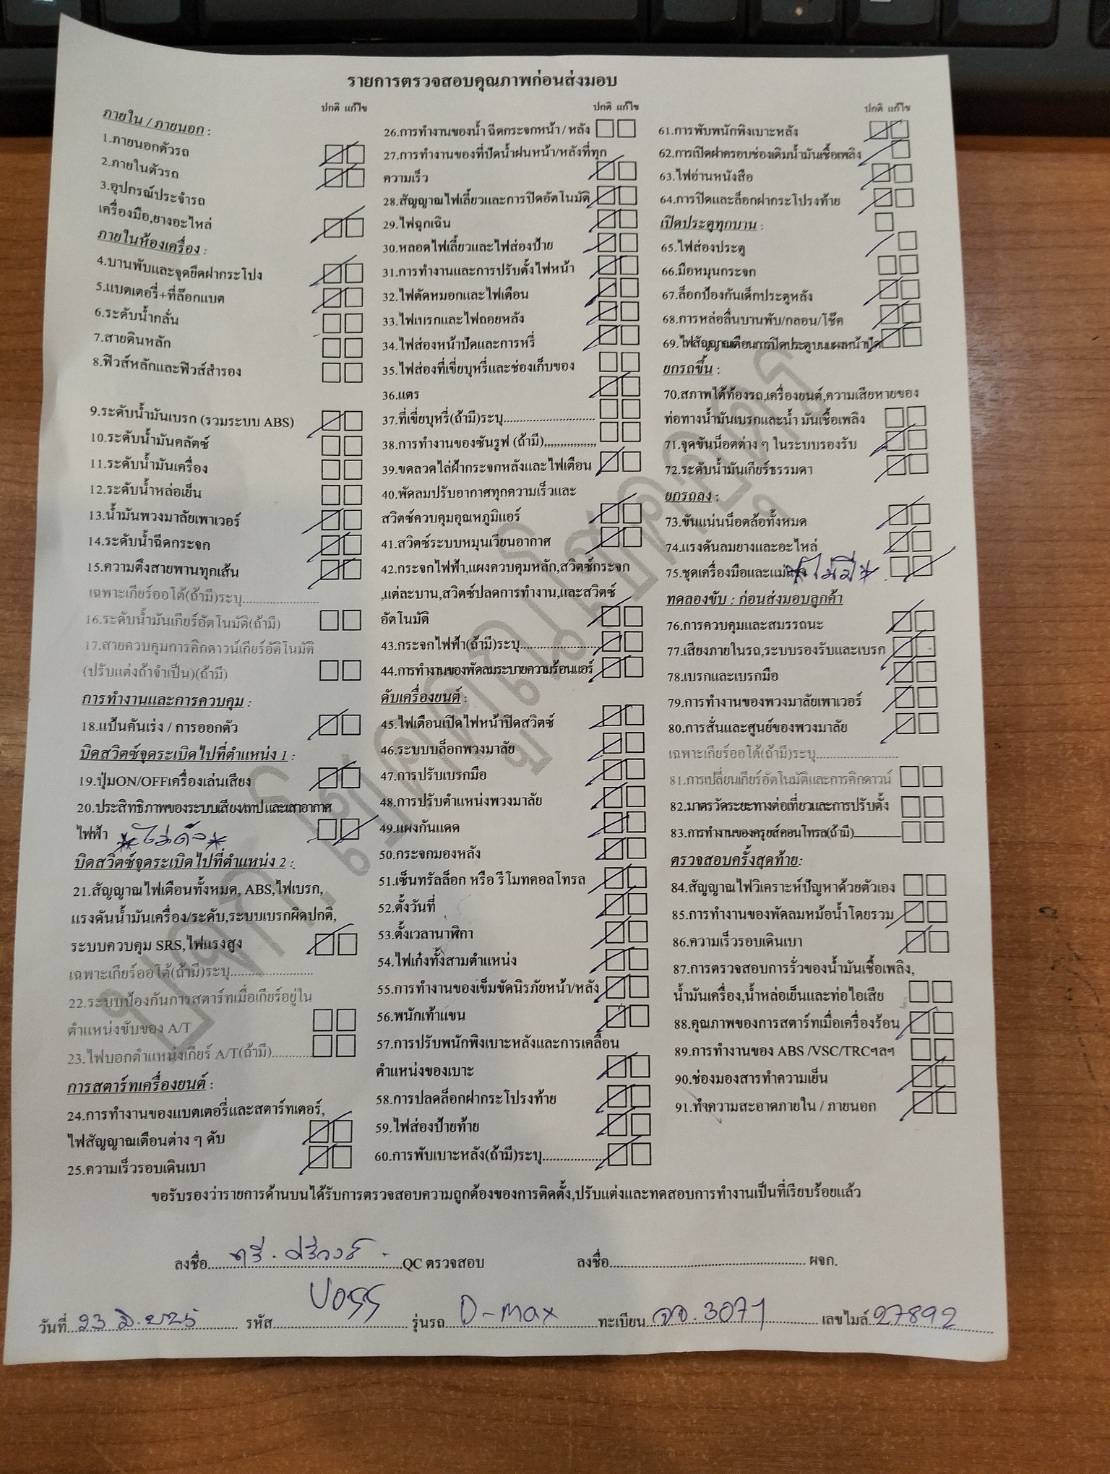 รายการตรวจสอบคุณภาพก่อนส่งมอบ
ปกติ แก้ไข
ภายใน / ภายนอก :
1.ภายนอกตัวรถ
2.ภายในตัวรถ
3.อุปกรณ์ประจำรถ
เครื่องมือ,ยางอะไหล่
ภายในห้องเครื่อง :
4.บานพับและจุดยึดฝากระโปง
5.แบตเตอรี่+ที่ล๊อกแบต
6.ระดับน้ำกลั่น
7.สายดินหลัก
8.ฟิวส์หลักและฟิวส์สำรอง
9.ระดับน้ำมันเบรก (รวมระบบ ABS)
10.ระดับน้ำมันคลัตซ์
11.ระดับน้ำมันเครื่อง
12.ระดับน้ำหล่อเย็น
13.น้ำมันพวงมาลัยเพาเวอร์
14.ระดับน้ำฉีดกระจก
15.ความตึงสายพานทุกเส้น
เฉพาะเกียร์ออโต้(ถ้ามี)ระบุ..................
16.ระดับน้ำมันเกียร์อัตโนมัติ(ถ้ามี)
17.สายควบคุมการคิกดาวน์เกียร์อัตโนมัติ
(ปรับแต่งถ้าจำเป็น)(ถ้ามี)
การทำงานและการควบคุม :
18.แป้นคันเร่ง / การออกตัว
บิดสวิตซ์จุดระเบิดไปที่ตำแหน่ง 1 :
19.ปุ่มON/OFFเครื่องเล่นเสียง
20.ประสิทธิภาพของระบบเสียงเทป และเสาอากาศ
ไฟฟ้า
บิดสวิตซ์จุดระเบิดไปที่ตำแหน่ง 2 :
21.สัญญาณไฟเตือนทั้งหมด, ABS,ไฟเบรก,
แรงดันน้ำมันเครื่อง/ระดับ,ระบบเบรกผิดปกติ,
ระบบควบคุม SRS,ไฟแรงสูง
เฉพาะเกียร์ออโต้(ถ้ามี)ระบุ....................
22.ระบบป้องกันการสตาร์ทเมื่อเกียร์อยู่ใน
ตำแหน่งขับของ A/T
23.ไฟบอกตำแหน่งเกียร์ A/T(ถ้ามี)..........
การสตาร์ทเครื่องยนต์ :
24.การทำงานของแบตเตอรี่และสตาร์ทเตอร์,
ไฟสัญญาณเตือนต่าง ๆ ดับ
25.ความเร็วรอบเดินเบา
ปกติ แก้ไข
26.การทำงานของน้ำ ฉีดกระจกหน้า / หลัง
27.การทำงานของที่ปัดน้ำฝนหน้า/หลังที่ทุก
ความเร็ว
28.สัญญาณไฟเลี้ยวและการปิดอัตโนมัติ
29.ไฟฉุกเฉิน
30.หลอดไฟเลี้ยวและไฟส่องป้าย
31.การทำงานและการปรับตั้งไฟหน้า
32.ไฟตัดหมอกและไฟเตือน
33.ไฟเบรกและไฟถอยหลัง
34.ไฟส่องหน้าปัดและการหรี่
35.ไฟส่องที่เขี่ยบุหรี่และช่องเก็บของ
36.แตร
37.ที่เขี่ยบุหรี่(ถ้ามี)ระบุ......................
38.การทำงานของซันรูฟ (ถ้ามี),,,,,,,,,,,,,
39.ขดลวดไล่ฝ้ากระจกหลังและไฟเตือน
40.พัดลมปรับอากาศทุกความเร็วและ
สวิตซ์ควบคุมอุณหภูมิแอร์
41.สวิตซ์ระบบหมุนเวียนอากาศ
42.กระจกไฟฟ้า,แผงควบคุมหลัก,สวิตซ์กระจก
,แต่ละบาน,สวิตซ์ปลดการทำงาน,และสวิตซ์
อัตโนมัติ
43.กระจกไฟฟ้า(ถ้ามี)ระบุ....................
44.การทำงานของพัดลมระบายความร้อนแอร์
ดับเครื่องยนต์ :
45.ไฟเตือนเปิดไฟหน้าปิดสวิตซ์
46.ระบบบล็อกพวงมาลัย
47.การปรับเบรกมือ
48.การปรับตำแหน่งพวงมาลัย
49.แผงกันแดด
50.กระจกมองหลัง
51.เซ็นทรัลล็อก หรือ รีโมทคอลโทรล
52.ตั้งวันที่
53.ตั้งเวลานาฬิกา
54.ไฟเก๋งทั้งสามตำแหน่ง
55.การทำงานของเข็มขัดนิรภัยหน้า/หลัง
56.พนักเท้าแขน
57.การปรับพนักพิงเบาะหลังและการเคลื่อน
ตำแหน่งของเบาะ
58.การปลดล็อกฝากระโปรงท้าย
59.ไฟส่องป้ายท้าย
60.การพับเบาะหลัง(ถ้ามี)ระบุ...............
ปกติ แก้ไข
61.การพับพนักพิงเบาะหลัง
62.การเปิดฝาครอบช่องเติมน้ำมันเชื้อเพลิง
63.ไฟอ่านหนังสือ
64.การปิดและล็อกฝากระโปรงท้าย
เปิดประตูทุกบาน :
65.ไฟส่องประตู
66.มือหมุนกระจก
67.ล็อกป้องกันเด็กประตูหลัง
68.การหล่อลื่นบานพับ/กลอน/โช๊ค
69.ไฟสัญญาณเตือนการปิดประตูบนแผงหน้าปัด
ยกรถขึ้น :
70.สภาพใต้ท้องรถ,เครื่องยนต์,ความเสียหายของ
ท่อทางน้ำมันเบรกและน้ำ มันเชื้อเพลิง
71.จุดขันน็อตต่าง ๆ ในระบบรองรับ
72.ระดับน้ำมันเกียร์ธรรมดา
ยกรถลง :
73.ขันแน่นน็อตล้อทั้งหมด
74.แรงดันลมยางและอะไหล่
75.ชุดเครื่องมือและแม่แรง *ไม่มี*
ทดลองขับ : ก่อนส่งมอบลูกค้า
76.การควบคุมและสมรรถนะ
77.เสียงภายในรถ,ระบบรองรับและเบรก
78.เบรกและเบรกมือ
79.การทำงานของพวงมาลัยเพาเวอร์
80.การสั่นและศูนย์ของพวงมาลัย
เฉพาะเกียร์ออโต้(ถ้ามี)ระบุ....................
81.การเปลี่ยนเกียร์อัตโนมัติและการคิกดาวน์
82.มาตรวัดระยะทางต่อเที่ยวและการปรับตั้ง
83.การทำงานของครุยส์คอนโทรล(ถ้ามี)..........
ตรวจสอบครั้งสุดท้าย:
84.สัญญาณไฟวิเคราะห์ปัญหาด้วยตัวเอง
85.การทำงานของพัดลมหม้อน้ำโดยรวม
86.ความเร็วรอบเดินเบา
87.การตรวจสอบการรั่วของน้ำมันเชื้อเพลิง,
น้ำมันเครื่อง,น้ำหล่อเย็นและท่อไอเสีย
88.คุณภาพของการสตาร์ทเมื่อเครื่องร้อน
89.การทำงานของ ABS /VSC/TRCฯลฯ
90.ช่องมองสารทำความเย็น
91.ทำความสะอาดภายใน / ภายนอก
ขอรับรองว่ารายการด้านบนได้รับการตรวจสอบความถูกต้องของการติดตั้ง,ปรับแต่งและทดสอบการทำงานเป็นที่เรียบร้อยแล้ว
ลงชื่อ..........QC ตรวจสอบ ลงชื่อ.......... ผจก.
วันที่ 23 มิ.ย. 25 รหัส U055 รุ่นรถ D-max ทะเบียน 3071 เลขไมล์ 27892